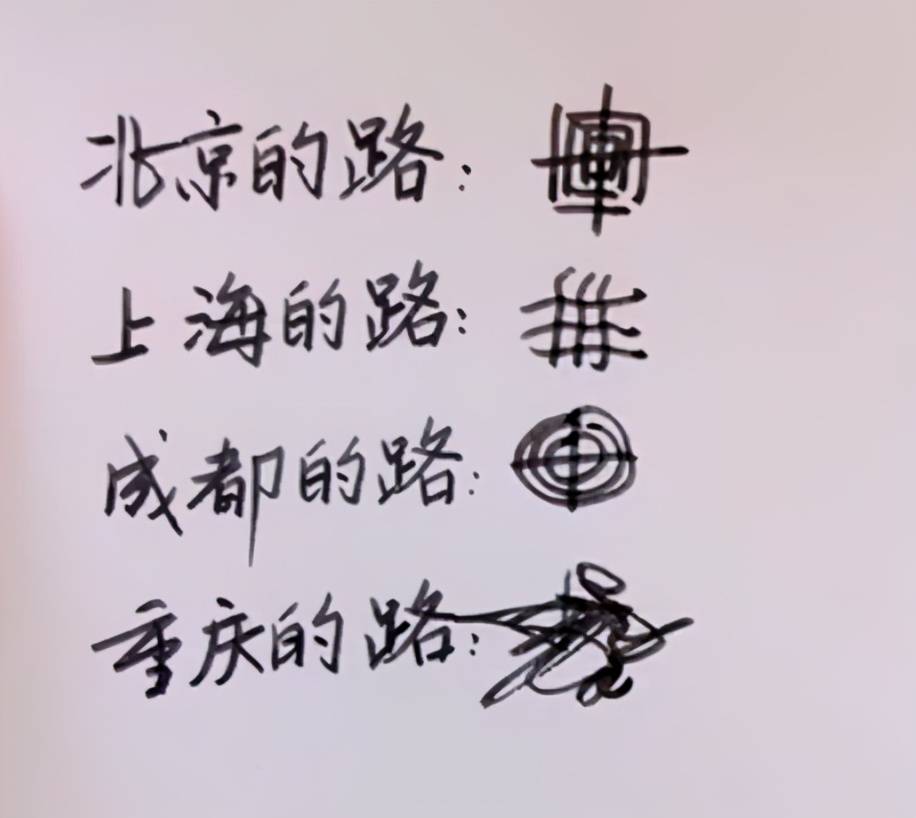 北京的路：
上海的路：
成都的路：
重庆的路：